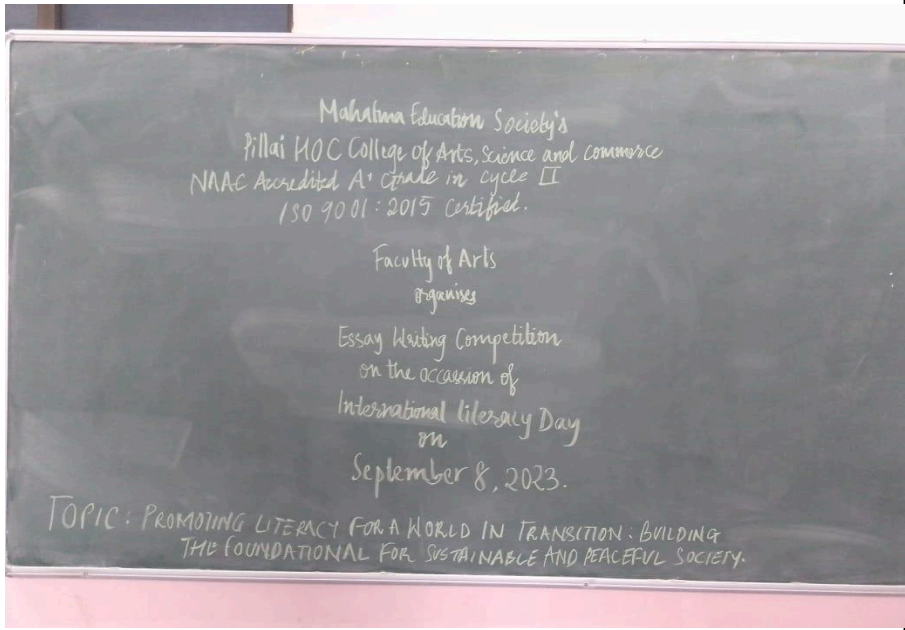 Mahatma Education Society's
Pillai HOC College of Arts, Science and Commerce
NAAC Accredited A+ Grade in cycle II
ISO 9001:2015 Certified.
Faculty of Arts
organises
Essay Writing Competition
on the occassion of
International Literacy Day
on
September 8, 2023.
TOPIC: PROMOTING LITERACY FOR A WORLD IN TRANSITION: BUILDING
THE FOUNDATIONAL FOR SUSTAINABLE AND PEACEFUL SOCIETY.